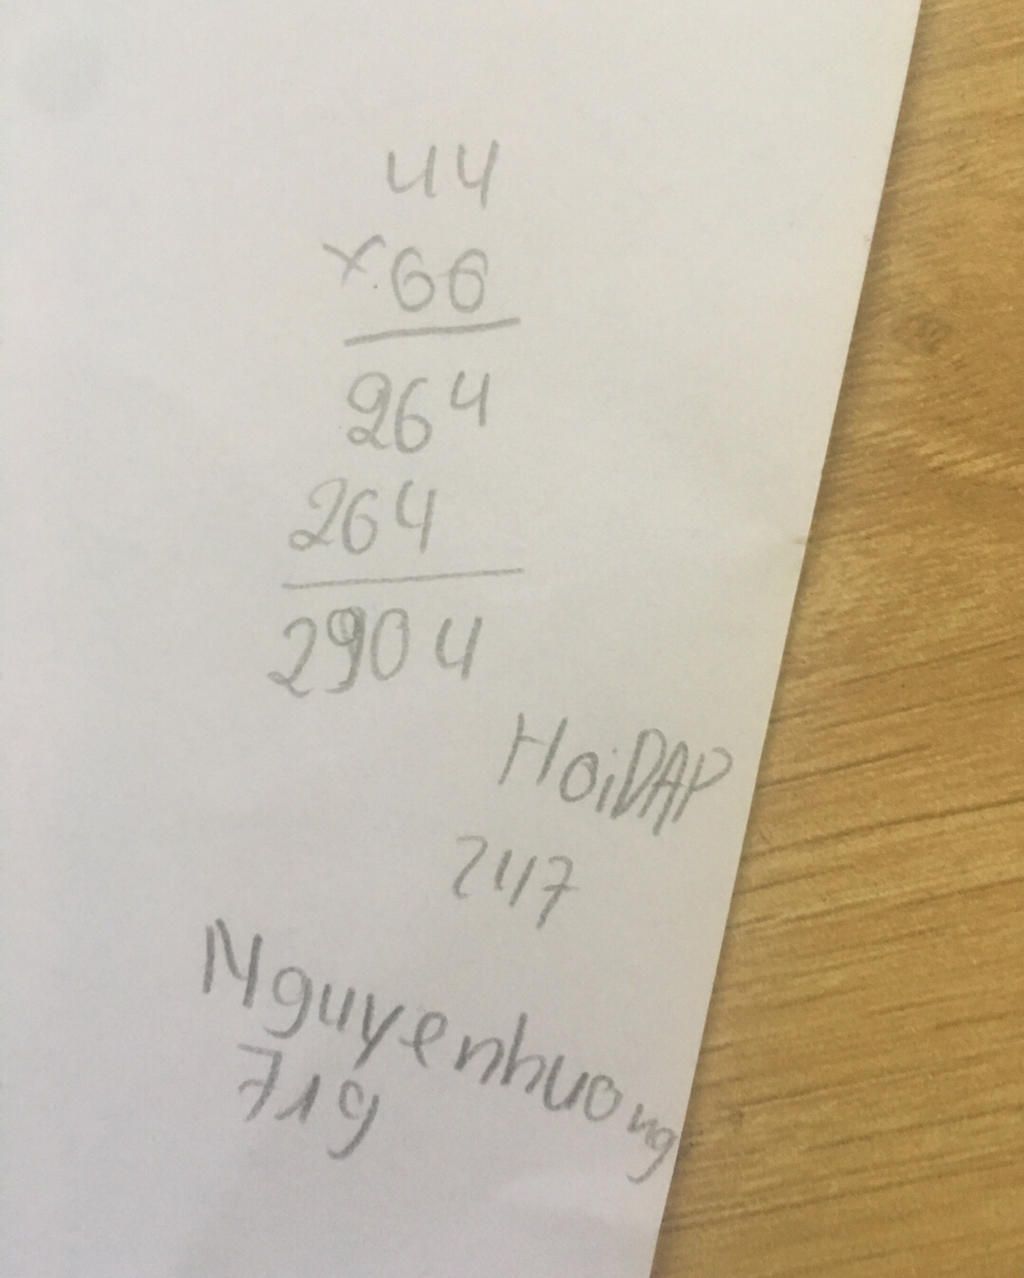 44
×66
264
264
2904
HoiDAP
247
Nguyenhuong
719